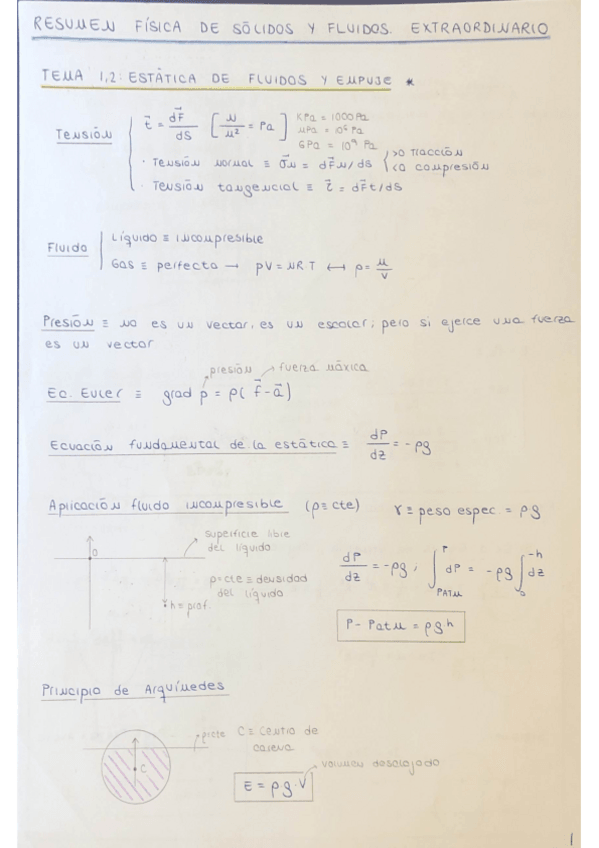 RESUMEN FÍSICA DE SÓLIDOS Y FLUIDOS. EXTRAORDINARIO
TEMA 1,2: ESTÁTICA DE FLUIDOS Y EMPUJE *
Tensión
t⃗ = dF⃗/dS [N/m² = Pa] KPa = 1000 Pa
MPa = 10⁶ Pa
GPa = 10⁹ Pa
· Tensión normal ≡ σ⃗n = dF⃗n/ds >0 Tracción
<0 compresión
· Tensión tangencial ≡ τ⃗ = dF⃗t/ds
Fluido
Líquido ≡ incompresible
Gas ≡ perfecto → pV = nRT ↔ ρ = m/V
Presión ≡ no es un vector, es un escalar; pero si ejerce una fuerza
es un vector
presión fuerza másica
Ec. Euler ≡ grad p = ρ( f⃗ - a⃗ )
Ecuación fundamental de la estática ≡ dP/dz = - ρg
Aplicación fluido incompresible (ρ ≡ cte) γ ≡ peso espec = ρg
superficie libre
del líquido
0
ρ = cte ≡ densidad
del líquido
h = prof.
dP/dz = -ρg ; ∫_PATM^P dP = -ρg ∫_0^-h dz
P - Patm = ρg·h
Principio de Arquímedes
ρ=cte C ≡ Centro de
carena
C
volumen desalojado
E = ρ·g·V
1